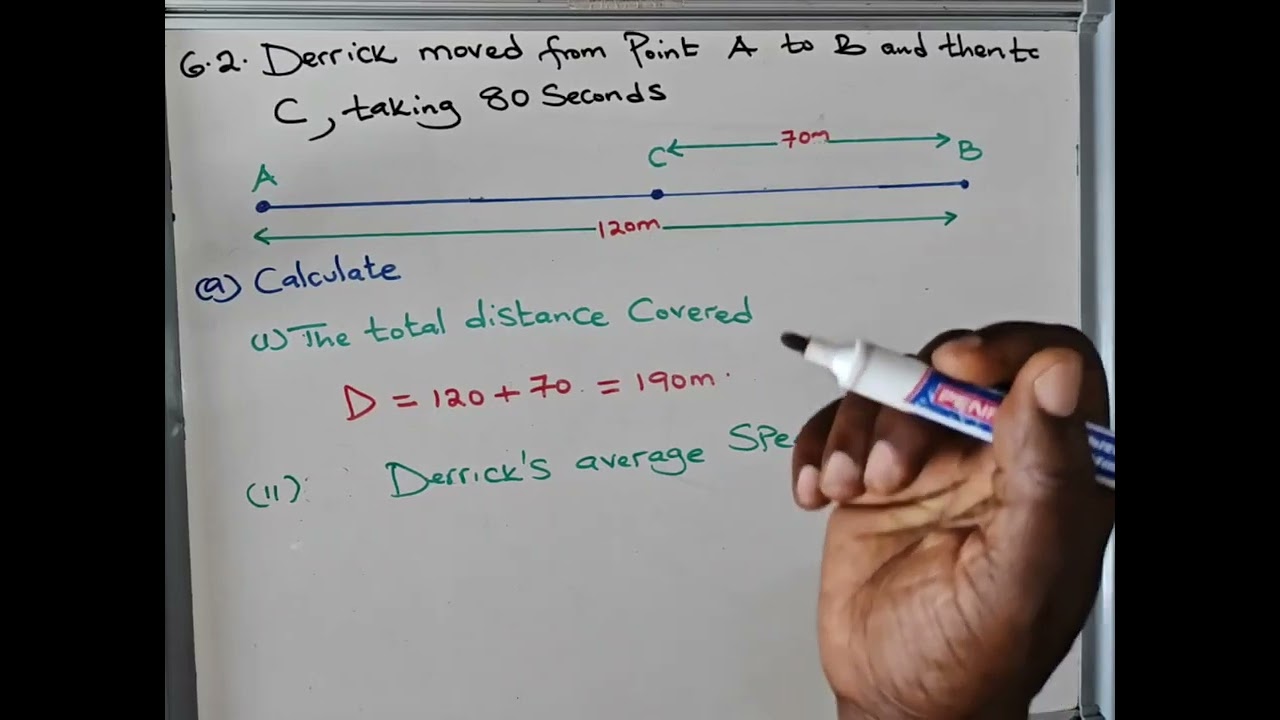 6.2. Derrick moved from Point A to B and then to
C, taking 80 Seconds
70m
A
C
B
120m
(a) Calculate
(i) The total distance Covered
D = 120 + 70 = 190m.
(ii) Derrick's average